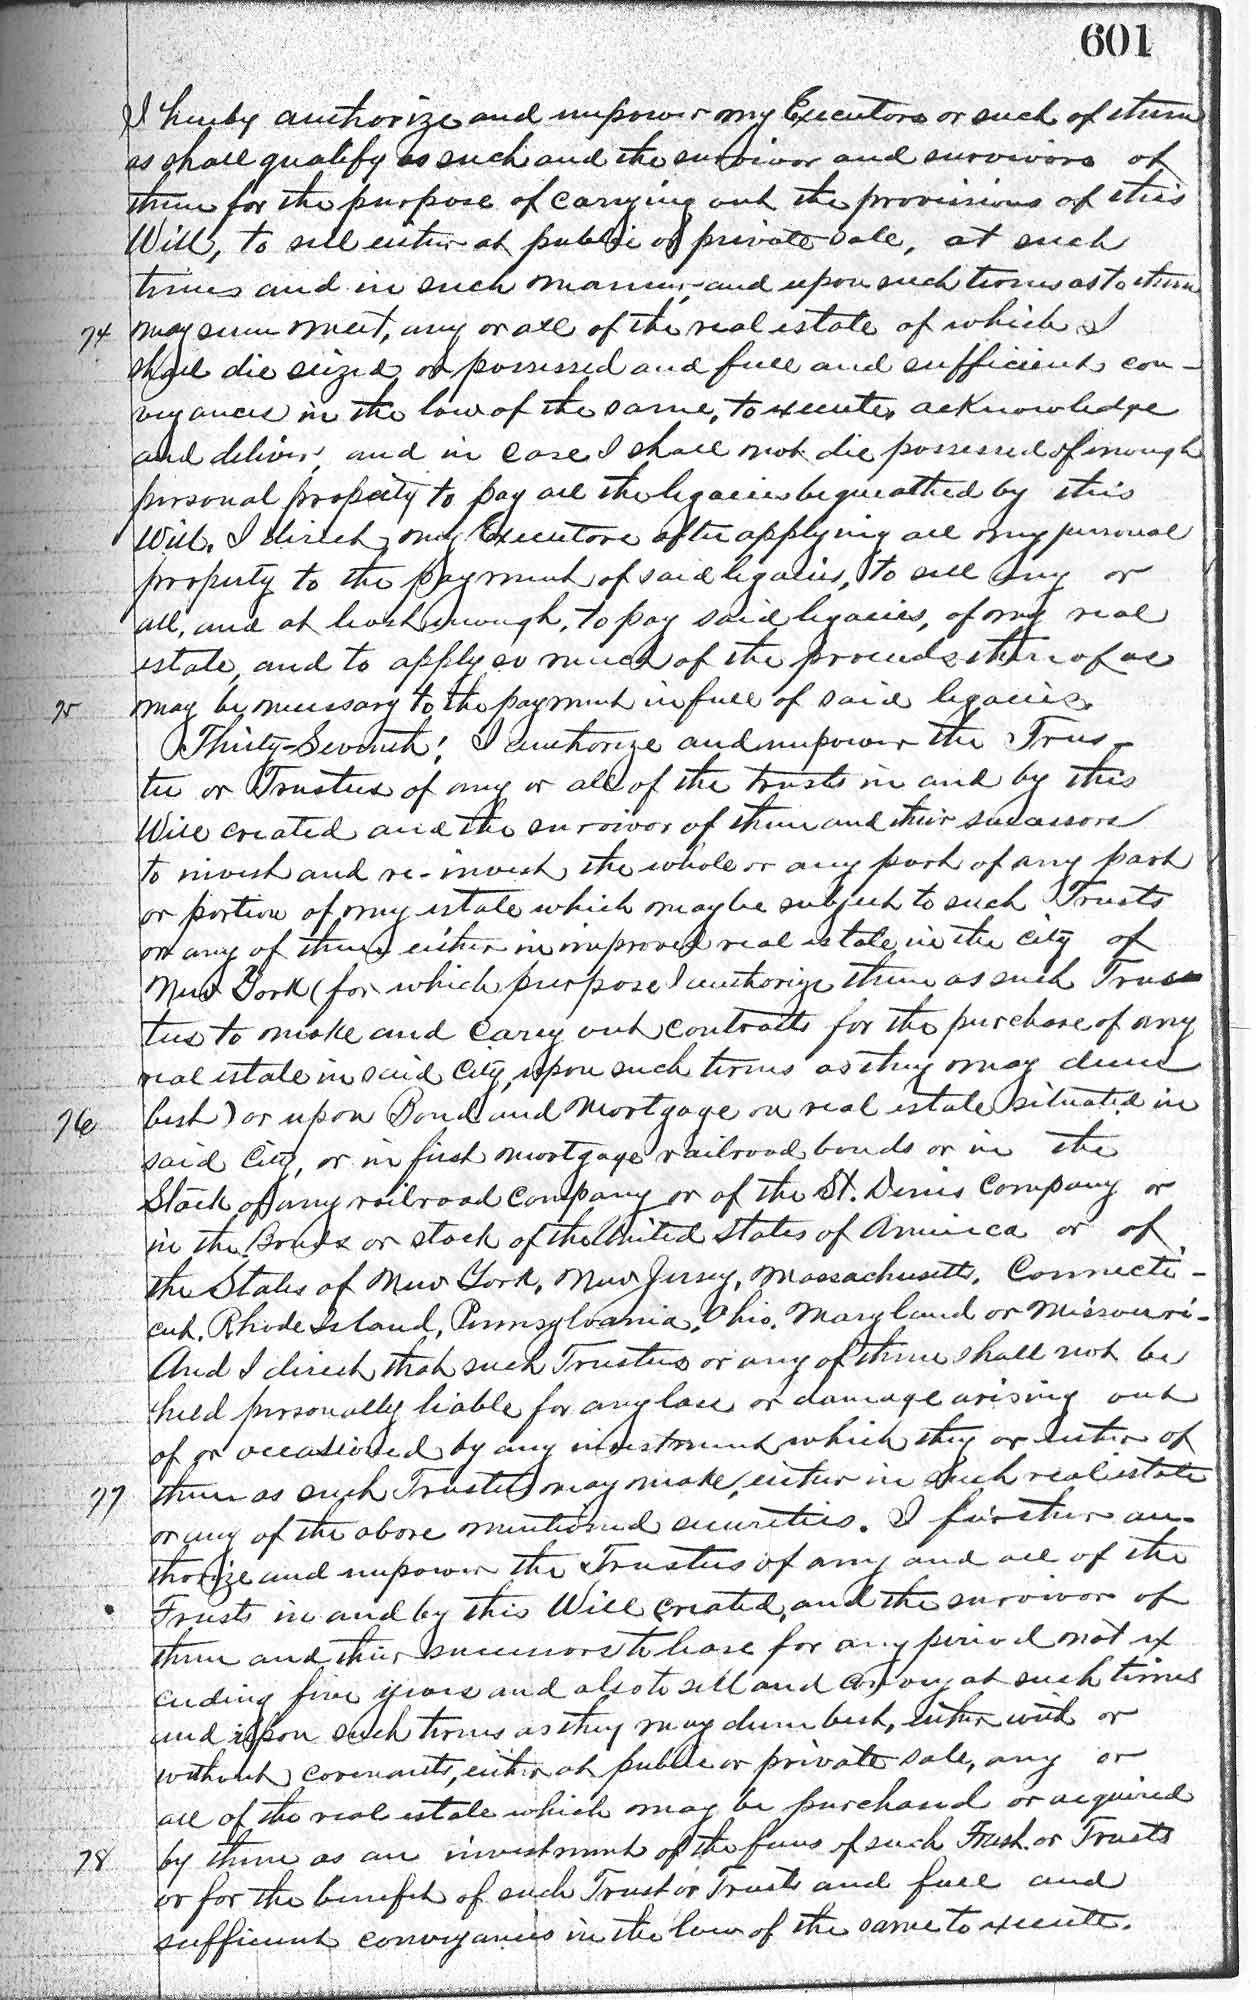 601
I hereby authorize and empower my Executors or such of them
as shall qualify as such and the survivor and survivors of
them for the purpose of carrying out the provisions of this
Will, to sell either at public or private sale, at such
times and in such manner, and upon such terms as to them
74 may seem meet, any or all of the real estate of which I
shall die seized or possessed and full and sufficient con-
veyances in the law of the same, to execute, acknowledge
and deliver, and in case I shall not die possessed of enough
personal property to pay all the legacies bequeathed by this
Will. I direct my Executors after applying all my personal
property to the payment of said legacies, to sell any or
all, and at least enough, to pay said legacies, of my real
estate, and to apply so much of the proceeds thereof as
75 may be necessary to the payment in full of said legacies.
Thirty-Seventh: I authorize and empower the Trus-
tee or Trustees of any or all of the trusts in and by this
Will created and the survivor of them and their successors
to invest and re-invest the whole or any part of any part
or portion of my estate which may be subject to such Trusts
or any of them either in improved real estate in the city of
New York (for which purpose I authorize them as such Trus-
tees to make and carry out contracts for the purchase of any
real estate in said City, upon such terms as they may deem
76 best) or upon Bond and Mortgage on real estate situated in
said City, or in first mortgage railroad bonds or in the
Stock of any railroad company or of the St. Denis Company or
in the Bonds or stock of the United States of America or of
the States of New York, New Jersey, Massachusetts, Connecti-
cut, Rhode Island, Pennsylvania, Ohio, Maryland or Missouri-
And I direct that such Trustees or any of them shall not be
held personally liable for any loss or damage arising out
of or occasioned by any investment which they or either of
77 them as such Trustees may make, either in such real estate
or any of the above mentioned securities. I further au-
thorize and empower the Trustees of any and all of the
Trusts in and by this Will created, and the survivor of
them and their successors to lease for any period not ex
ceeding five years and also to sell and convey at such times
and upon such terms as they may deem best, either with or
without covenants, either at public or private sale, any or
all of the real estate which may be purchased or acquired
78 by them as an investment of the funs of such Trust or Trusts
or for the benefit of such Trust or Trusts and full and
sufficient conveyances in the law of the same to execute.